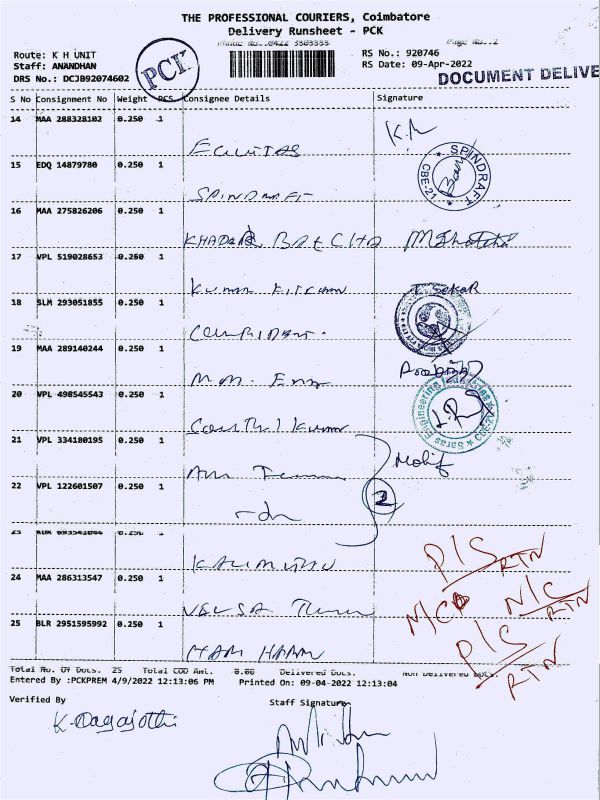 THE PROFESSIONAL COURIERS, Coimbatore
Delivery Runsheet - PCK
Phone No.:0422 3303333 Page No.:2
Route: K H UNIT
Staff: ANANDHAN
DRS No.: DCJB92074602
PCK
RS No.: 920746
RS Date: 09-Apr-2022
DOCUMENT DELIVE
S No Consignment No Weight PCS Consignee Details Signature
14 MAA 288328102 0.250 1
EQUITAS K.M
15 EDQ 14879780 0.250 1
SPINDRAFT
SPINDRAFT CBE-21
16 MAA 275826206 0.250 1
KHADAR
17 VPL 519028653 0.250 1
Kumar T. Sekar
18 SLM 293051855 0.250 1
19 MAA 289140244 0.250 1
M.M.
20 VPL 498545543 0.250 1
Senthil Kumar
Saras Engineering Industries
21 VPL 334180195 0.250 1
Mohit
22 VPL 122601507 0.250 1
-do
2
23 0.250 1
24 MAA 286313547 0.250 1
25 BLR 2951595992 0.250 1
P/S RTN
N/C N/C RTN
P/S RTN
Total No. Of Docs. 25 Total COD Amt. 0.00 Delivered Docs. Non Delivered Docs.
Entered By :PCKPREM 4/9/2022 12:13:06 PM Printed On: 09-04-2022 12:13:04
Verified By Staff Signature
K. Nagajothi